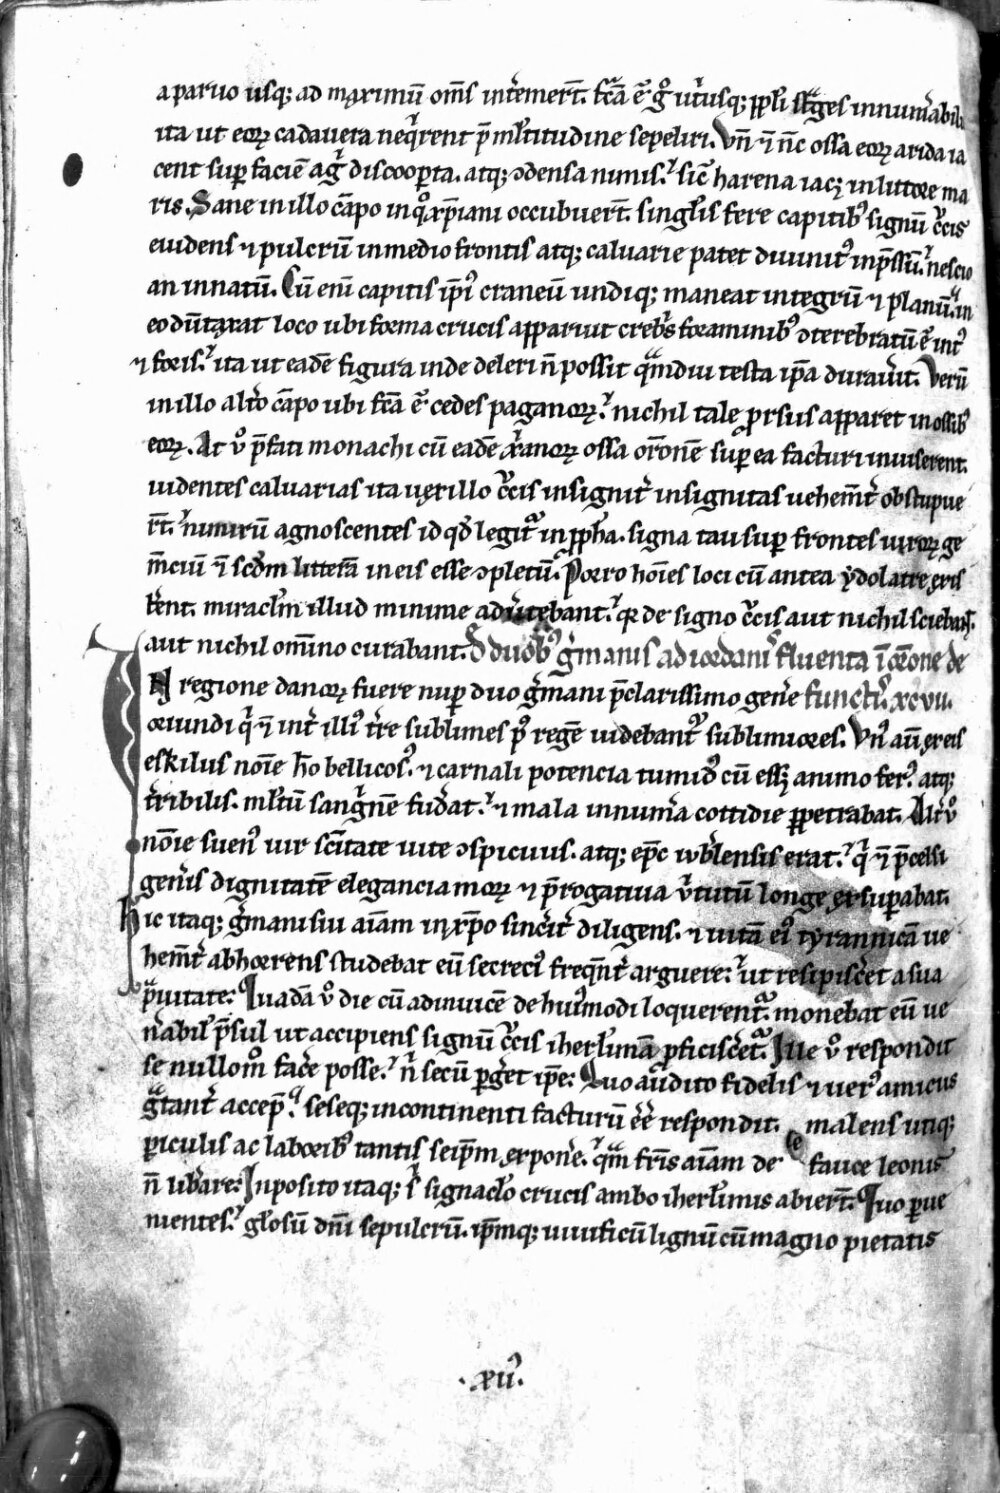 a paruo usq; ad maximū om̄s int̄emert̄. fc̄a ē gͦ utͥusq; ppl̄i st̄ges innum̄abil
ita ut eoꝝ cadauera neqͥrent p̄ ml̄titudine sepeliri. Vn̄ ⁊ n̄c ossa eoꝝ arida ia
cent suꝑ faciē agͥ discooꝑta. atq; ↄdensa nimis. sic̄ harena iacꝫ in littore ma
ris. Sane in illo cāpo in qͦ xp̄iani occubuert̄. singl̄is fere capitibꝰ signū cͥcis
euidens ⁊ pulcrū in medio frontis atq; caluarie patet diuinitꝰ inp̄ssū. nescio
an innatū. Cū enī capitis ip̄iꝰ craneū undiq; maneat integrū ⁊ planū. in
eo dūtaxat loco ubi forma crucis appariut crebͥs foraminibꝰ ↄterebratū ē intꝰ
⁊ foris. ita ut eadē figura inde deleri n̄ possit qͣmdiu testa ip̄a durauit̄. Verū
in illo alt̄o cāpo ubi fc̄a ē cedes paganoꝝ. nichil tale ꝓrsus apparet in ossibꝰ
eoꝝ. At ỏ p̄fati monachi cū eadē xͥanoꝝ ossa or̄onē suꝑ ea facturi inuiserent.
uidentes caluarias ita uexillo cͥcis insignit̄ insignitas uehem̄t̄ obstupue
rt̄. nimirū agnoscentes id qd̄ legitͣ in ppħa. signa tau suꝑ frontes uiroꝝ ge
m̄ciū ⁊ scd̄m litterā in eis esse ↄpletū. Porro hoīes loci cū antea ydolatre exis
t̄ent. miracl̄m illud minime aduͥtebant. qꝛ de signo cͥcis aut nichil sciebāt.
aut nichil omīno curabant. D̄ duobꝰ gͥmanis ad iordanī fluenta ī or̄one de
IN regione danoꝝ fuere nuꝑ duo gͥmani p̄clarissimo gen̄e functꝭ. xcvii.
oriundi qͥ ⁊ int̄ illiꝰ t̄re sublimes pꝰ regē uidebantꝰ sublimiores. Vnꝰ aū ex eis
eskilus noīe ho bellicosꝰ. ⁊ carnali potencia tumidꝰ cū essꝫ animo ferꝰ. atq;
t̄ribilis. ml̄tū sangͥnē fuderat. ⁊ mala innum̄a cottidie ꝑpetrabat. Alt̄ ỏ
noīe suenꝰ uir sc̄itate uite ↄspicuus. atq; ep̄c wb̄lensis erat. qͥ ⁊ p̄celsi
gen̄is dignitatē elegancia moꝝ ⁊ p̄rogatiua v̄tutū longe exsuꝑabat.
hic itaq; gͥmani sui aīam in xp̄o sinc̄it̄ diligens. ⁊ uitā eiꝰ tyrannicā ue
hem̄t̄ abhorrens studebat eū secreciꝰ freqn̄t̄ arguere. ut resipisc̄et a sua
pͣuitate. Quadā ỏ die cū adinuicē de huiꝰmodi loquerentͣ. monebat eū ue
n̄abil̓ p̄sul ut accipiens signū cͥcis iherl̄imā ꝓficisc̄etͣ. Ille ỏ respondit
se nullomͦ fac̄e posse. n̄ secū ꝑg̓et ip̄e. Quo audito fidelis ⁊ uerꝰ amicus
gͣtant̄ accep̄. seseq; incontinenti facturū ee̅ respondit. malens utiq;
periculis ac laboribꝰ tantis seip̄m expon̄e. qͣm fr̄is aīam de fauce leonis
n̄ lib̄are. Inposito itaq; sͥ signacl̄o crucis ambo iherl̄imis abiert̄. Quo ꝑue
nientes. gl̄osū dn̄i sepulcrū. ip̄mq; uiuificū lignū cū magno pietatis
se
.xiiꝰ.